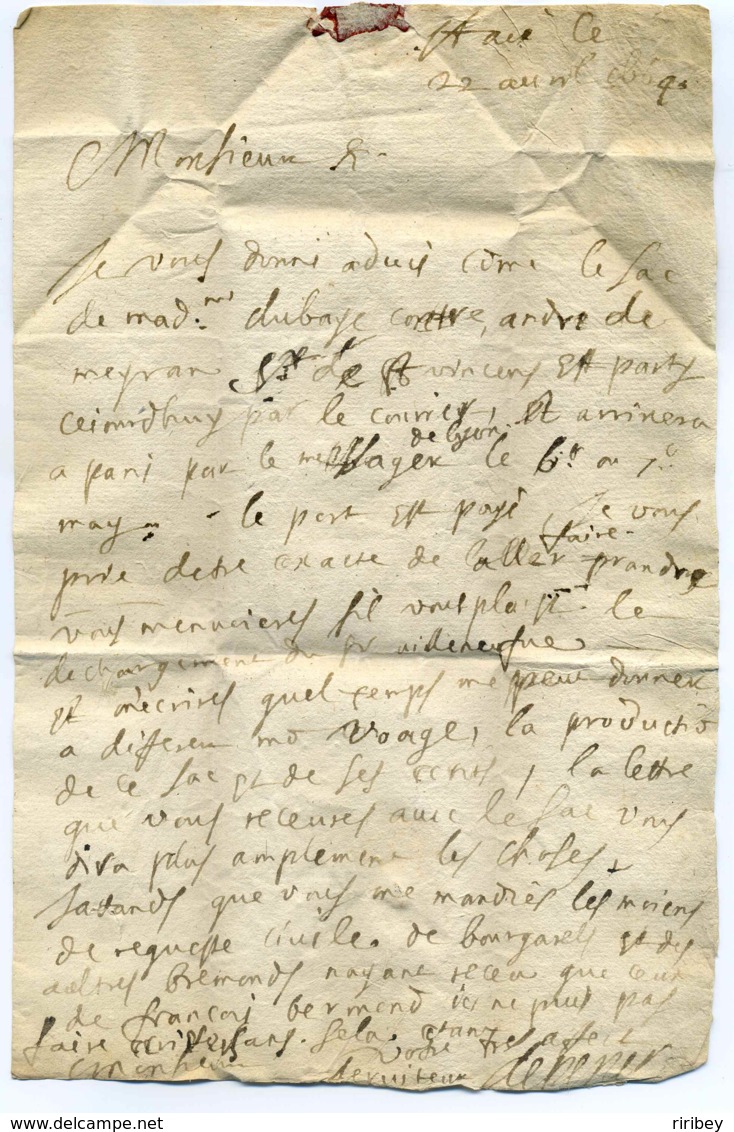 22 auril
Monsieur &
Je vous donne aduis come le sac
de mad.me dubaye contre, andre de
meyran Sr de St vincens Est party
ceiourdhuy par le courier, Et arriuera
de lyon
a paris par le messager le 6e ou 7e
may le port Est payé, Je vous
faire
prie detre exacte de laller prandre
vous menuoieres sil vous plaist le
dechargement du Sr uilleneufue
Et mecrires quel temps me peut donner
a differer mo voage, la productio
de ce sac Et de ses ecrits, la lettre
que vous receures auec le sac vous
dira plus amplement les choses,
Jattands que vous me mandiés les moiens
de requeste ciuile. de bourgarels Et des
aultres bremonds nayant receu que ceux
de françois bermond ie ne puis pas
faire sans sela Estant
Monsieur Vostre tres affect
seruiteur
ribirey